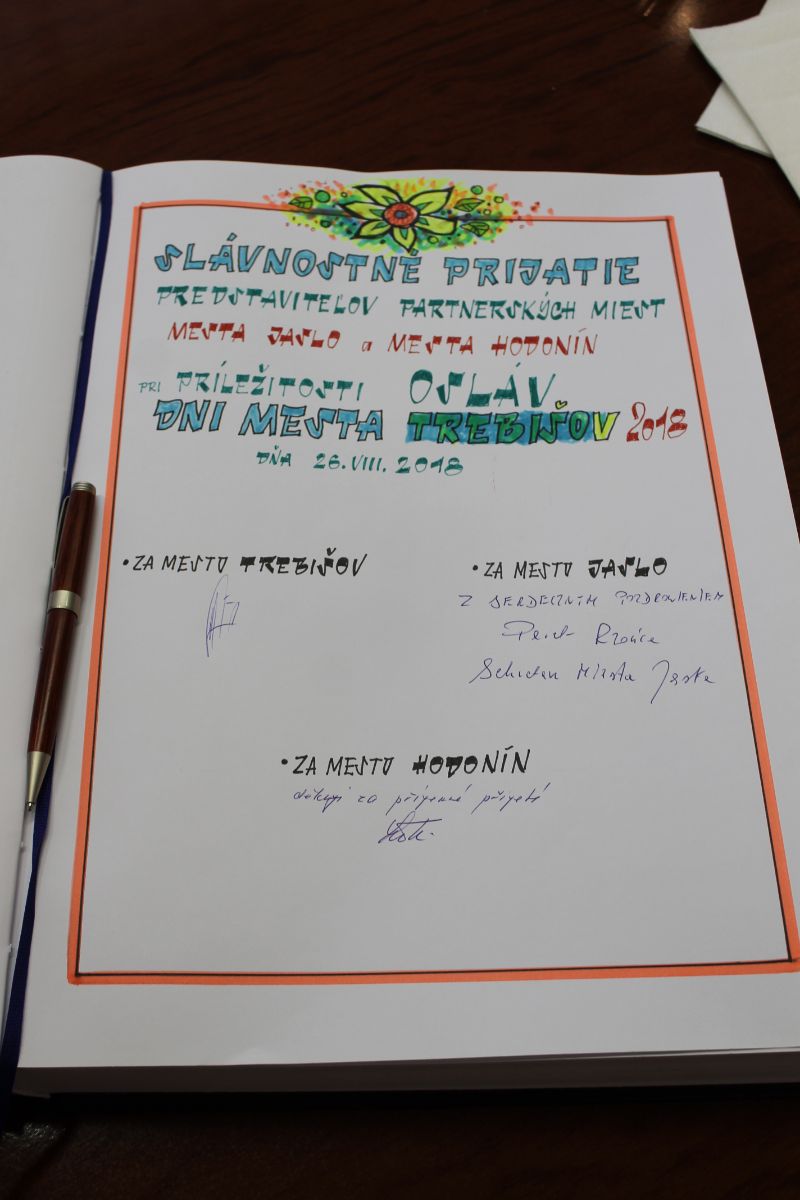 SLÁVNOSTNÉ PRIJATIE
PREDSTAVITEĽOV PARTNERSKÝCH MIEST
MESTA JASLO a MESTA HODONÍN
PRI PRÍLEŽITOSTI OSLÁV
DNI MESTA TREBIŠOV 2018
DŇA 26.VIII. 2018
• ZA MESTO TREBIŠOV
• ZA MESTO JASLO
Z SERDECZNYM POZDROWIENIEM
Miasta Jasła
• ZA MESTO HODONÍN
děkuji za příjemné přijetí